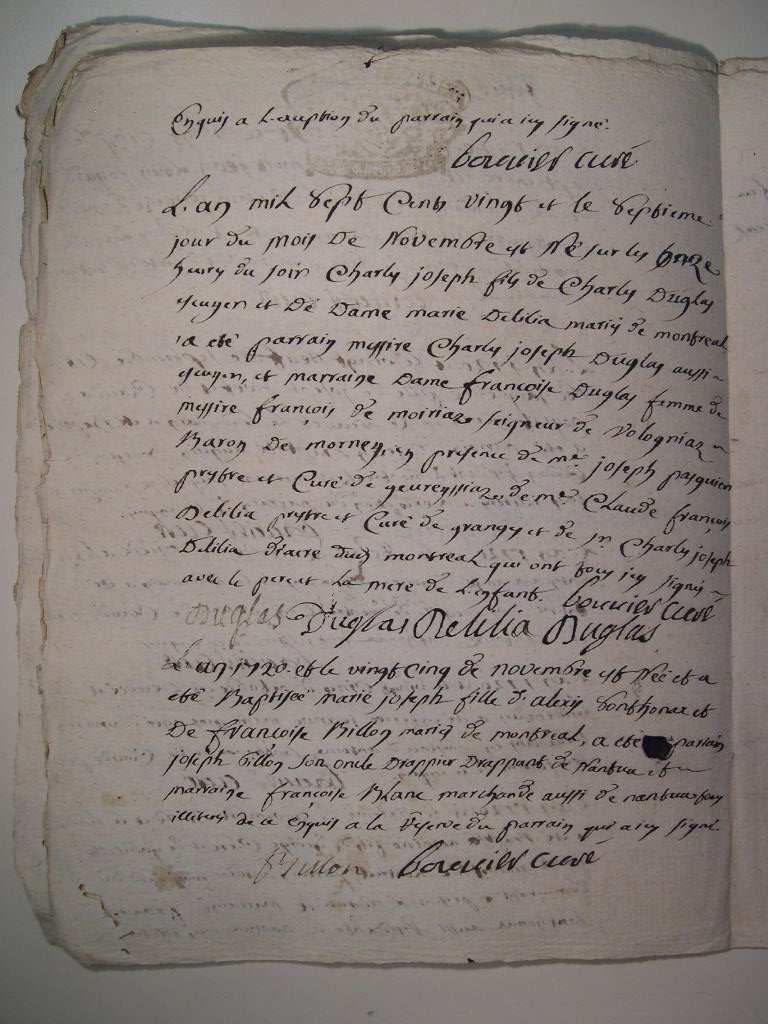 Enquis a L'exeption du parrain qui a icy signé.
bouvier curé
L'an mil sept Cents vingt et le septieme
jour du mois De Novembre est Né sur les onze
heures du soir Charles joseph fils de Charles Duglas
escuyer et De Dame marie Delilia mariés de montreal
a eté parrain messire Charles joseph Duglas aussi
escuyer, et marraine Dame françoise Duglas femme de
messire françois de moiriaz seigneur de Vologniaz
Baron De mornay, en presence de mre joseph pasquier
prestre et Curé de geureyssiaz, de mre Claude françois
Delilia prestre et Curé de granges et de sr Charles joseph
Delilia diacre dud montreal qui ont tous icy signés
avec le pere et La mere de L'enfant. bouvier curé
Duglas Duglas Delilia Duglas
L'an 1720 et le vingt Cinq de novembre est Née et a
eté Baptisée marie joseph fille d'alexis sonthonax et
De françoise Billon mariés de montreal, a eté parrain
joseph billon son oncle Drappier Drappant de Nantua et
marraine françoise Blanc marchande aussi de nantua tous
illiteres de ce Enquis a la reserve du parrain qui a icy signé.
Billon bouvier curé